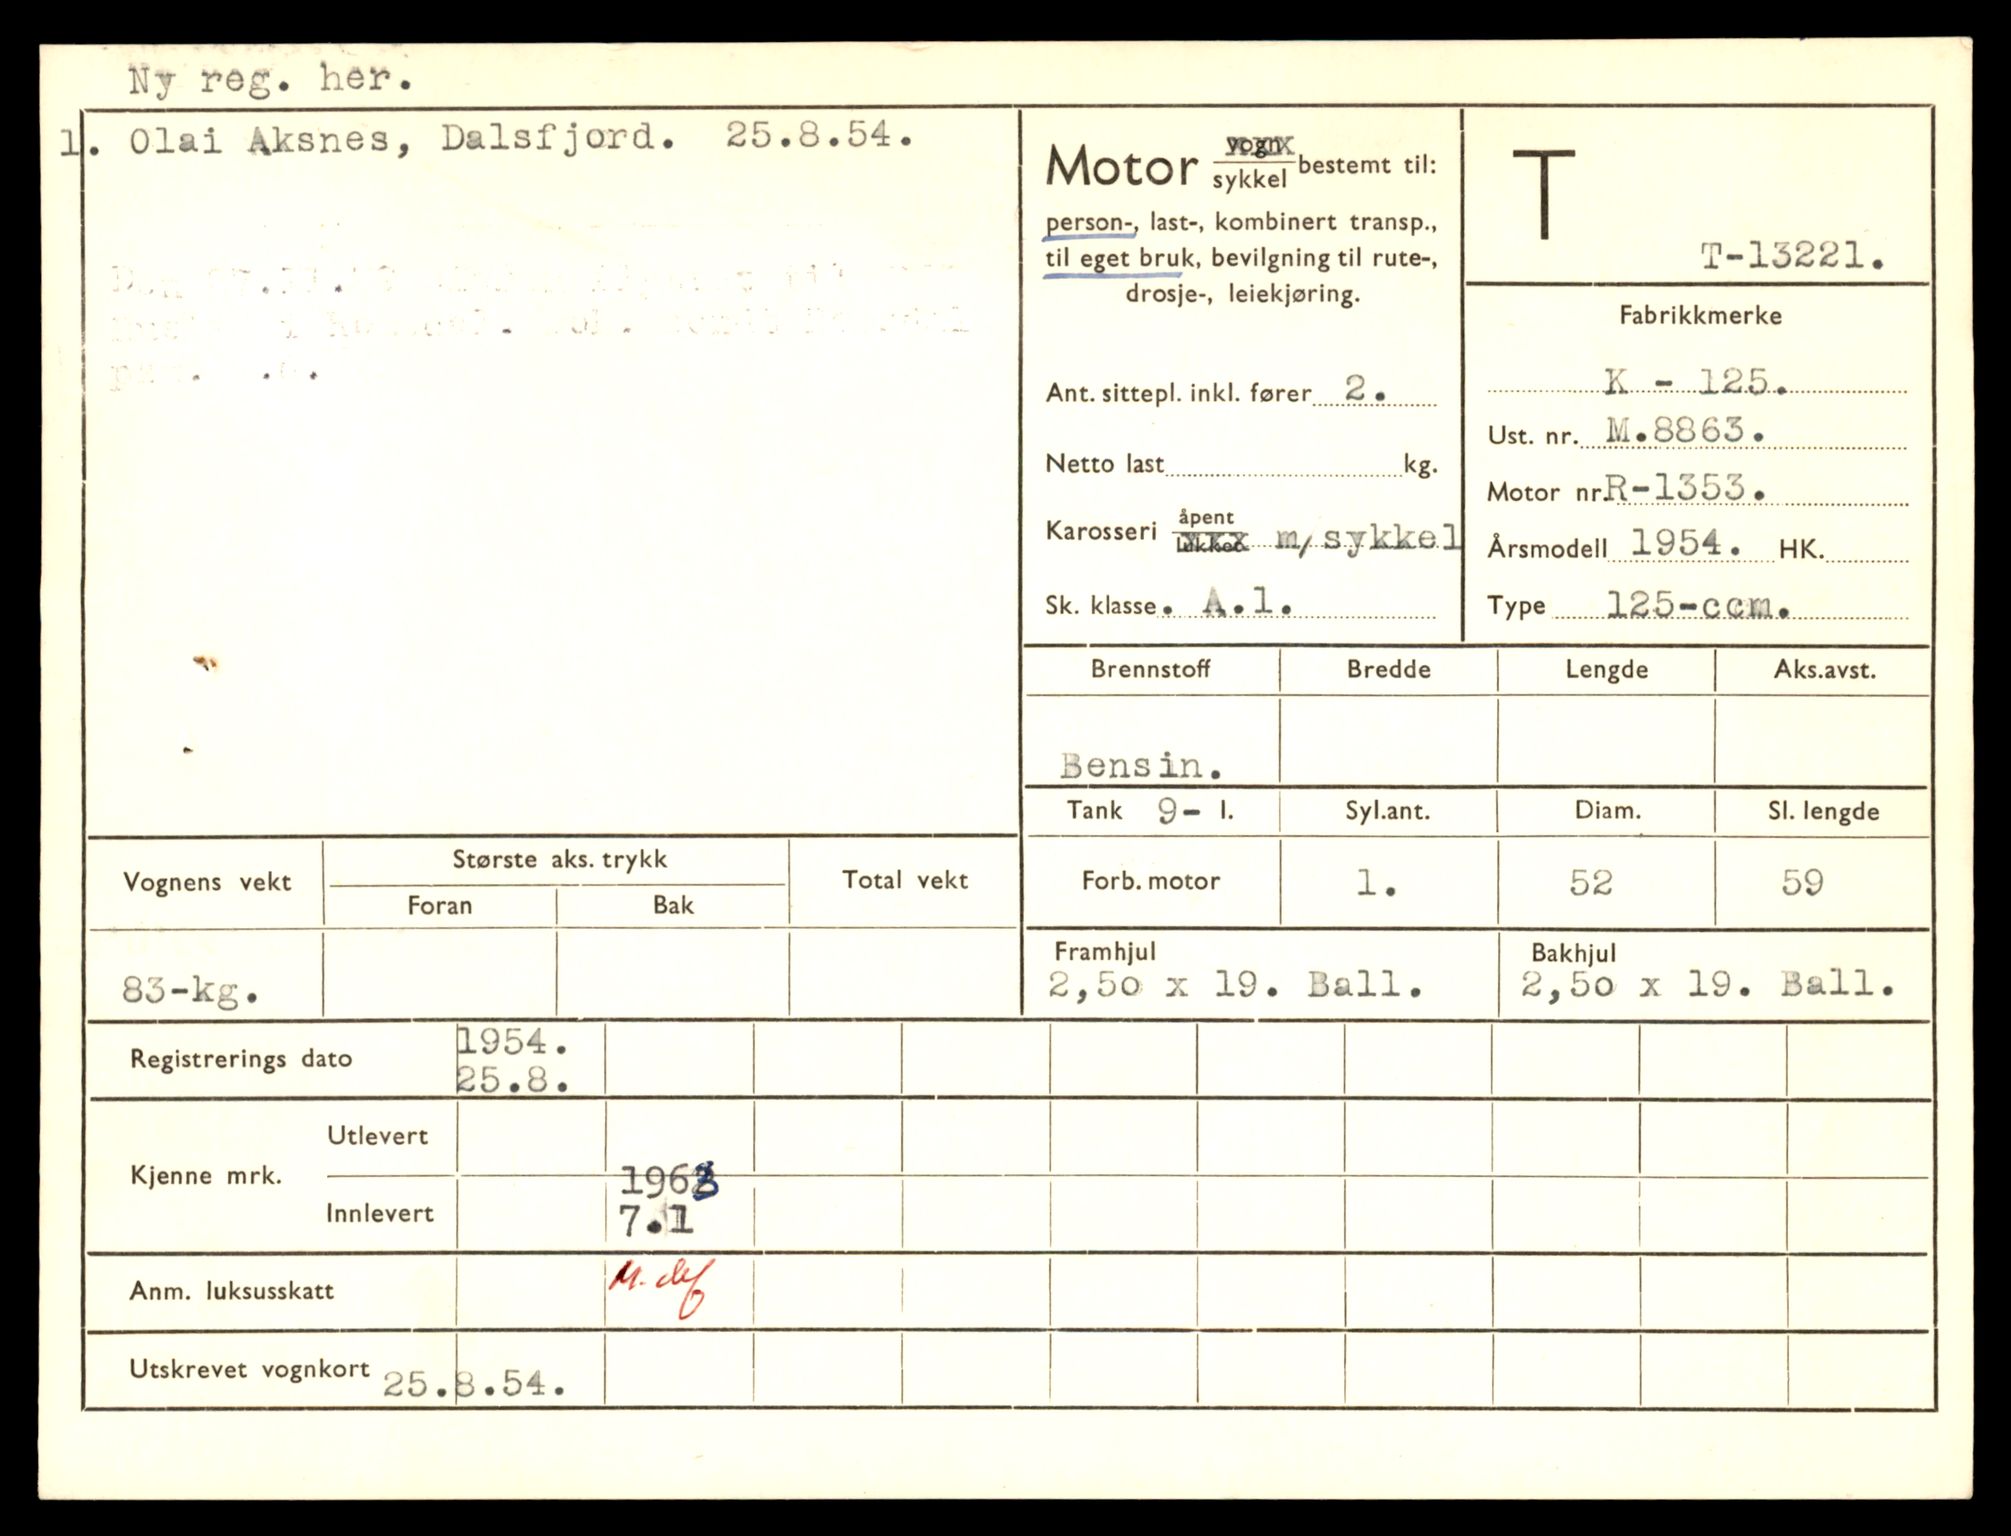 Ny reg. her.
1. Olai Aksnes, Dalsfjord. 25.8.54.
Motor vogn/sykkel bestemt til:
person-, last-, kombinert transp.,
til eget bruk, bevilgning til rute-,
drosje-, leiekjøring.
Ant. sittepl. inkl. fører 2.
Netto last kg.
Karosseri åpent/lukket m/sykkel
Sk. klasse. A.1.
T
T-13221.
Fabrikkmerke
K - 125.
Ust. nr. M.8863.
Motor nr. R-1353.
Årsmodell 1954. HK.
Type 125-ccm.
Brennstoff Bredde Lengde Aks.avst.
Bensin.
Tank 9- l. Syl.ant. Diam. Sl. lengde
Forb. motor 1. 52 59
Vognens vekt Største aks. trykk Total vekt
Foran Bak
83-kg.
Framhjul Bakhjul
2,50 x 19. Ball. 2,50 x 19. Ball.
Registrerings dato 1954.
25.8.
Kjenne mrk. Utlevert
Innlevert 1963
7.1
Anm. luksusskatt
Utskrevet vognkort 25.8.54.